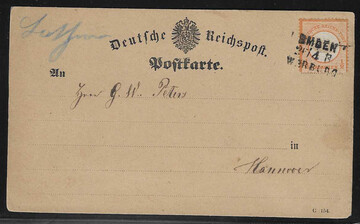 Deutsche Reichspost.
Postkarte.
EMDEN
WARBURG
An
Herrn G. W. Peters
in
Hannover